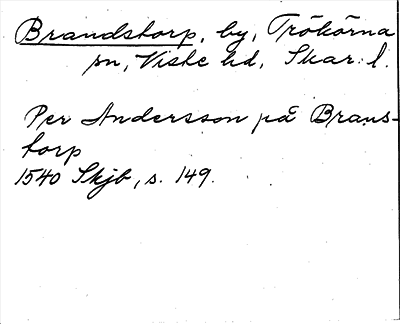 Brandstorp, by, Trökörna
sn, Viste hd, Skar. l.
Per Andersson på Brans-
torp
1540 Skjb, s. 149.